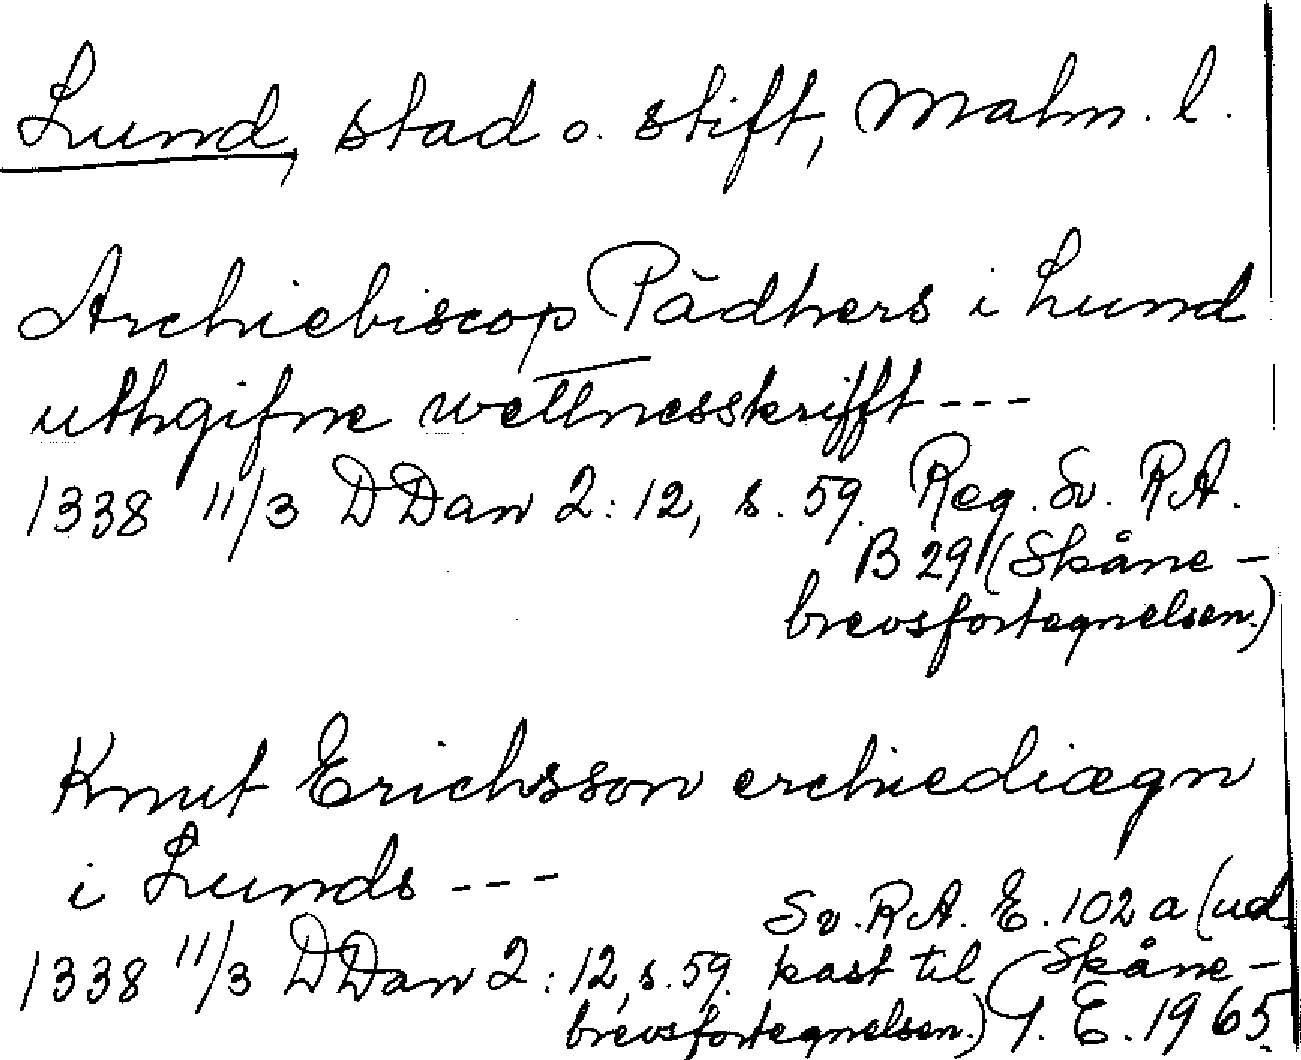 Lund, stad o. stift, Malm. l.
Archiebiscop Pädhers i Lund
uthgifne wettnesskrifft ---
1338 11/3 DDan 2:12, s. 59. Reg. Sv. RA.
B 29 (Skåne-
brevsfortegnelsen.)
Knut Erichsson erchiediægn
i Lunds ---
Sv. RA. E. 102 a (ud
1338 11/3 DDan 2:12, s. 59. kast til Skåne-
brevsfortegnelsen.) G. E. 1965.